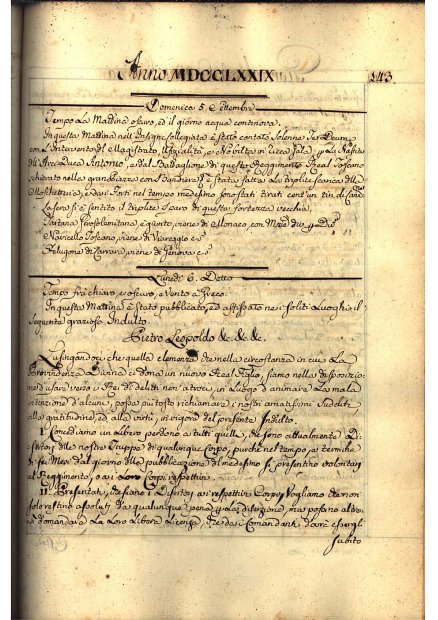 Anno MDCCLXXIX
243.
Domenica 5 Settembre
Tempo La Mattina oscuro, ed il giorno acqua continova.
In questa Mattina nell'Insigne Collegiata è stato cantato Solenne Te Deum
con L'intervento del Magistrato, Ufizialità, e Nobiltà in Gala, p La Nascita
dell'Arciduca Antonio, e dal Battaglione di questo Reggimento Real Toscano
schierato nella gran Piazza con Bandiera è stata fatta La triplice scarica della
Moschetteria, e dai Forti nel tempo medesimo sono stati tirati cent'un tiri di Can
La sera si è sentito il triplice sparo di questa fortezza vecchia.
Capitana Gerosolimitana è giunta, viene di Monaco, con
Navicello Toscano, viene di Viareggio
Felugone di Carrara, viene di Genova
Lunedì 6. Detto
Tempo frà chiaro, e oscuro, e Vento a Greco.
In questa Mattina è stato pubblicato, ed affissato nei soliti Luoghi il
seguente grazioso Indulto
Pietro Leopoldo &c. &c. &c.
Lusingandoci che quella clemenza che nella circostanza in cui La
Provvidenza Divina ci dona un nuovo Real Figlio, siamo nella disposizio
ne d'usare verso i Rei di delitti non atroci, in Luogo d'animare La mala
intenzione d'alcuno, possa piuttosto richiamare i nostri amatissimi Sudditi
alla gratitudine, ed alla virtù, in vigore del presente Indulto.
I. Concediamo un Libero perdono a tutti quelli, che sono attualmente Di-
sertori delle nostre Truppe di qualunque Corpo, purchè nel tempo, e termine
di sei Mesi dal giorno della pubblicazione del medesimo si presentino volontari
al Reggimento, o ai Loro Corpi respettivi.
II. Presentati, che siano i Disertori ai respettivi Corpi, Vogliamo che non
solo restino assoluti da qualunque pena p La diserzione, ma possano altresì
domandare La Loro Libera Licenza, che da i Comandanti dovrà essergli
subito